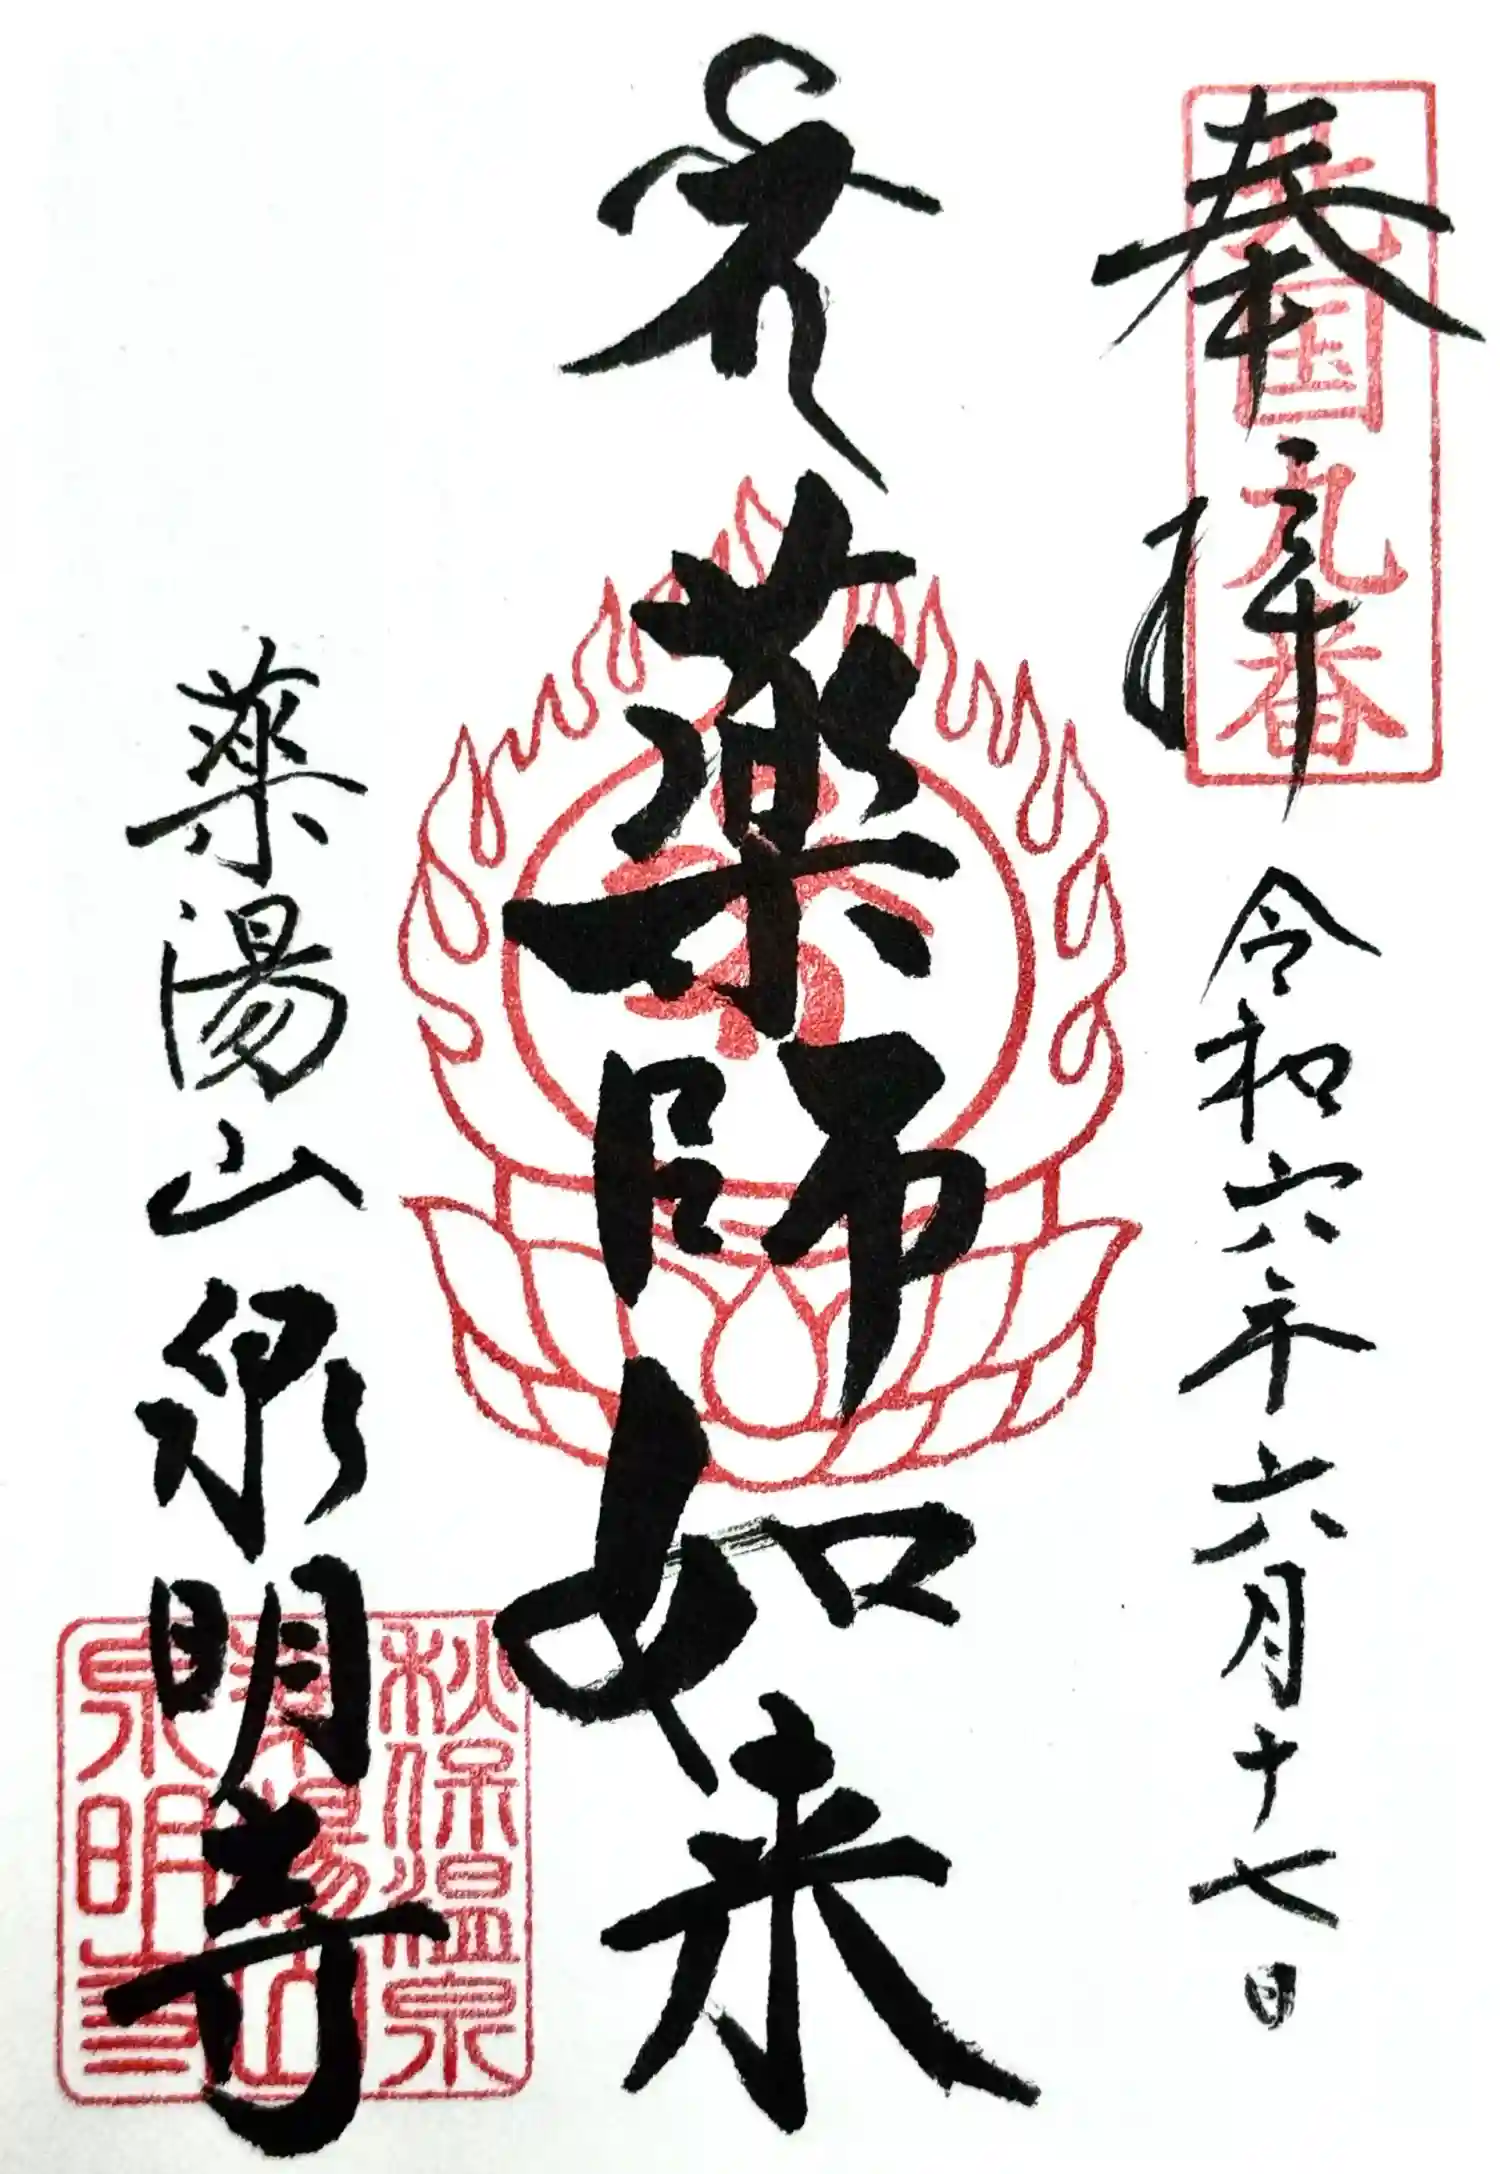 奉拝
北国九番
令和六年六月十七日
薬師如来
薬湯山
泉明寺
秋保温泉
薬湯山
泉明寺